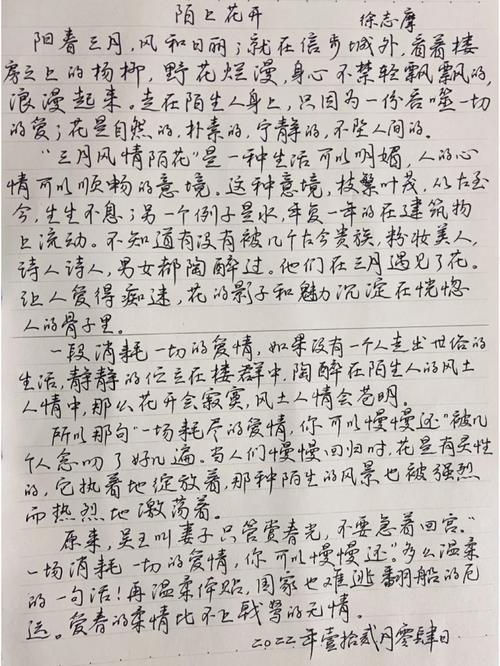 陌上花开
徐志摩
阳春三月,风和日丽;就在信步城外,看着楼
房之上的杨柳,野花烂漫,身心不禁轻飘飘的,
浪漫起来。走在陌生人身上,只因为一份吞噬一切
的爱;花是自然的,朴素的,宁静的,不坠人间的。
"三月风情陌花"是一种生活可以明媚,人的心
情可以顺畅的意境。这种意境,枝繁叶茂,从古至
今,生生不息;另一个例子是水,年复一年的在建筑物
上流动。不知道有没有被几个古今贵族,粉妆美人,
诗人诗人,男女都陶醉过。他们在三月遇见了花。
让人爱得痴迷,花的影子和魅力沉淀在恍惚
人的骨子里。
一段消耗一切的爱情,如果没有一个人走出世俗的
生活,静静的伫立在楼群中,陶醉在陌生人的风土
人情中,那么花开会寂寞,风土人情会苍明。
所以那句"一场耗尽的爱情,你可以慢慢还"被几
个人念叨了好几遍。当人们慢慢回归时,花是有灵性
的,它执着地绽放着,那种陌生的风景也被强烈
而热烈地激荡着。
原来,吴王叫妻子只管赏春光,不要急着回宫。"
一场消耗一切的爱情,你可以慢慢还。"多么温柔
的一句话!再温柔体贴,国家也难逃翻船的厄
运。爱春的柔情比不上戟弩的无情。
2022年壹拾贰月零肆日